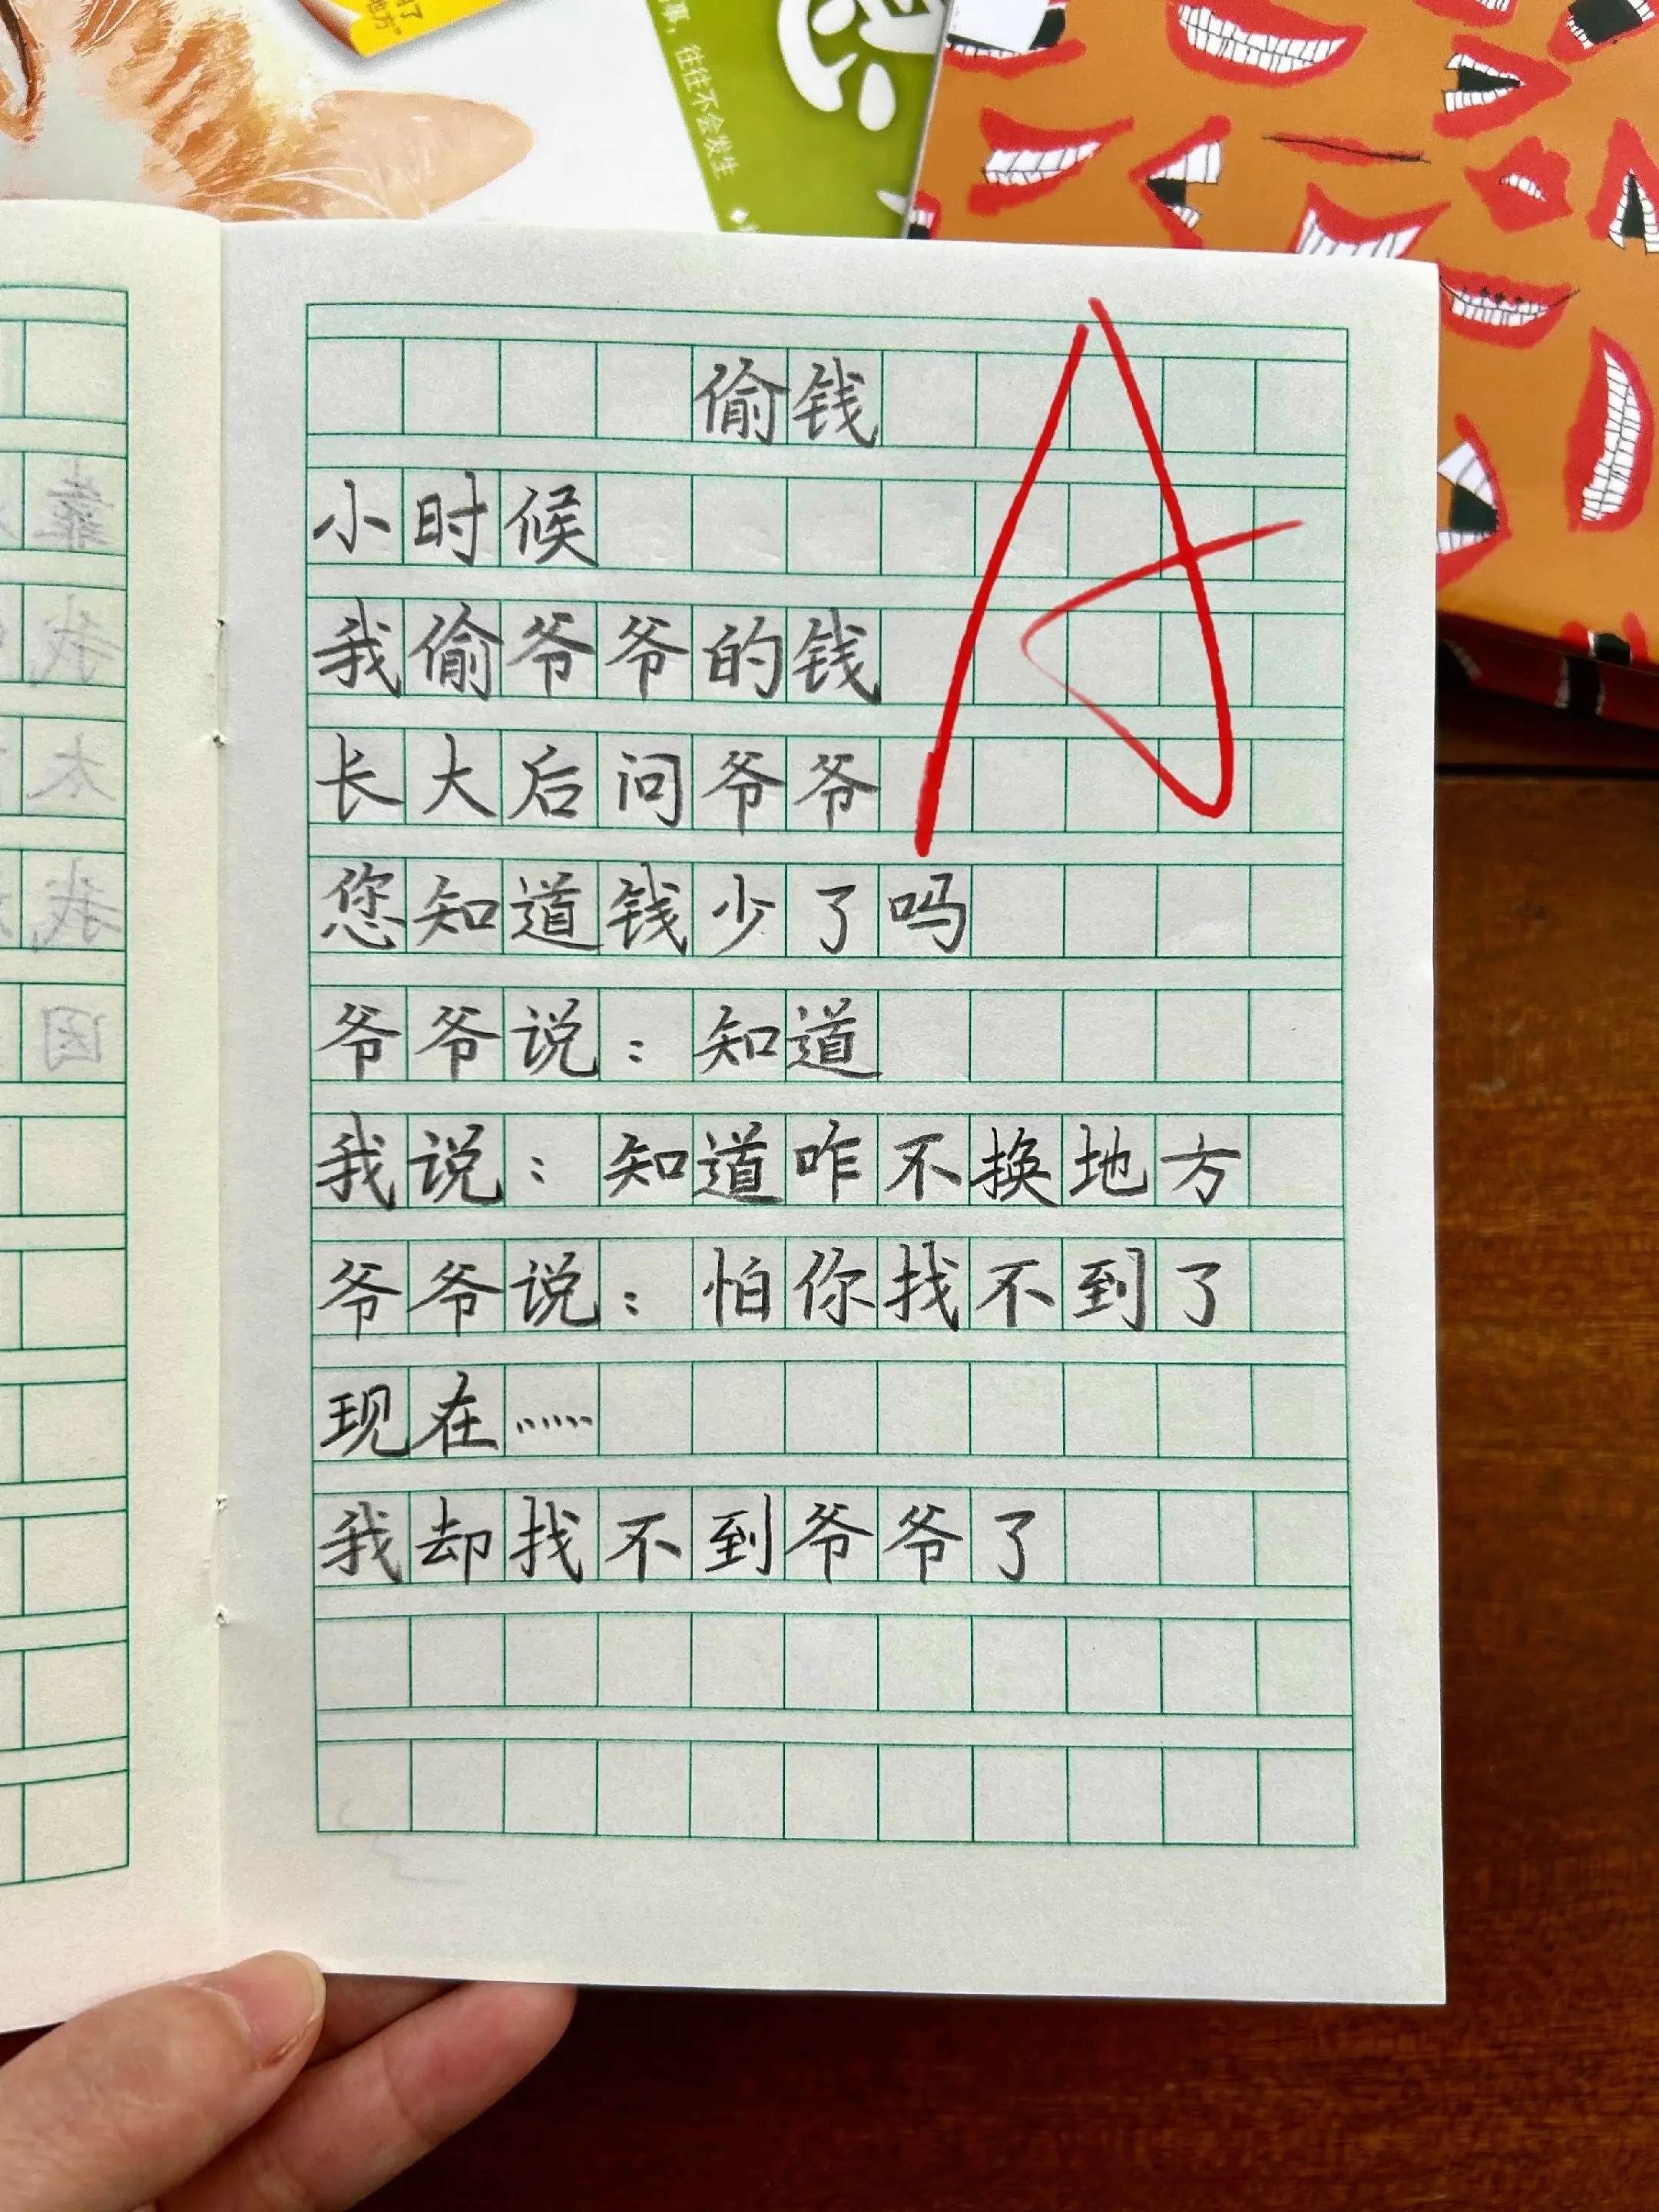 了
地方"
那，往往不会发生
偷钱
小时候
我偷爷爷的钱
长大后问爷爷
您知道钱少了吗
爷爷说：知道
我说：知道咋不换地方
爷爷说：怕你找不到了
现在……
我却找不到爷爷了
A